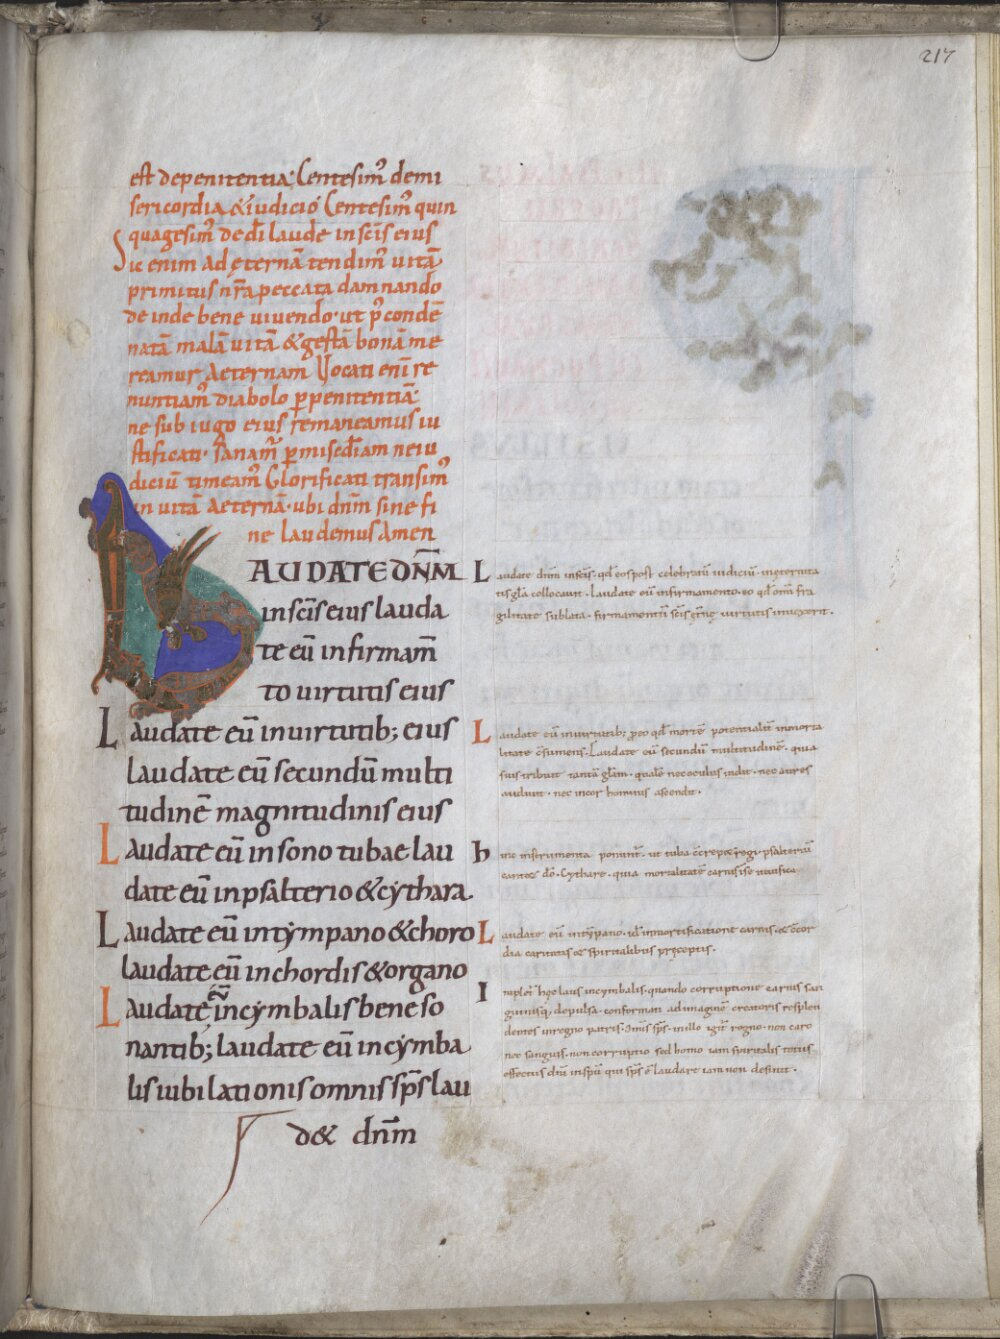 217
est depenitentia; Centesim̄ demi
sericordia & iudicio Centesim̄ quin
quagesim̄ de dī laude in sc̄is eius
Sic enim ad ęternā tendim̄ uitā
primitus nr̄a peccata damnando
de inde bene uiuendo · ut p̄ condē
natā malā uitā & gestā bonā me
reamur Aeternam Uocati eni᷑ re
nuntiam̄ diabolo p̱ penitentiā
ne sub iugo eius remaneamus iu
stificati · sanam̄ p̱ misēdiam ne iu
diciū timeam̄ Glorificati transim̄
in uitā Aeternā · ubi dn̄m sine fi
ne laudemus Amen
LAUDATE DN̄M
in sc̄is eius lauda
te eū in firmam̄
to uirtutis eius
Laudate eū in uirtutib; eius
laudate eū secundū multi
tudinē magnitudinis eius
Laudate eū in sono tubae lau
date eū in psalterio & cythara
Laudate eū in tympano & choro
laudate eū in chordis & organo
Laudate eū in cymbalis bene so
nantib; laudate eū in cymba
lis iubilationis omnis sp̄s lau
d& dn̄m
Laudate dn̄m in sc̄is · qd̄ eos post celebratū iudiciū · in ęternita
tis gl̄a collocauit · Laudate eū in firmamento · eo qd̄ om̄i fra
gilitate sublata · firmamentū sc̄is uirtutis
Laudate eū in uirtutib; ꝑeo qd̄ mortē potentialit̄ inmorta
litate c̄sumens · Laudate eū secundū multitudinē · quia
suis tribuit tantā gl̄am · qualē nec oculus uidit · nec aures
audiunt · nec in cor hominis ascendit ·
hinc instrumenta ponunt᷑ · ut tuba regi · psalteriū
dō · Cythare · quia mortalitatē carnis
Laudate eū in tȳpano · id᷑ in mortificatione carnis · & c̄cor
dia caritatis & spiritalibus preceptis ·
Implet᷑ laus in cymbalis · quando corruptione carnis san
guinisq; depulsa · conformati ad imaginē creatoris resplen
dentes in regno patris · Om̄is sp̄s · in illo igit᷑ regno · non caro
nec sanguis · non corruptio sed homo iam spiritalis totus
effectus dn̄m in sp̄u qui sp̄s ē laudare iam non desinit ·